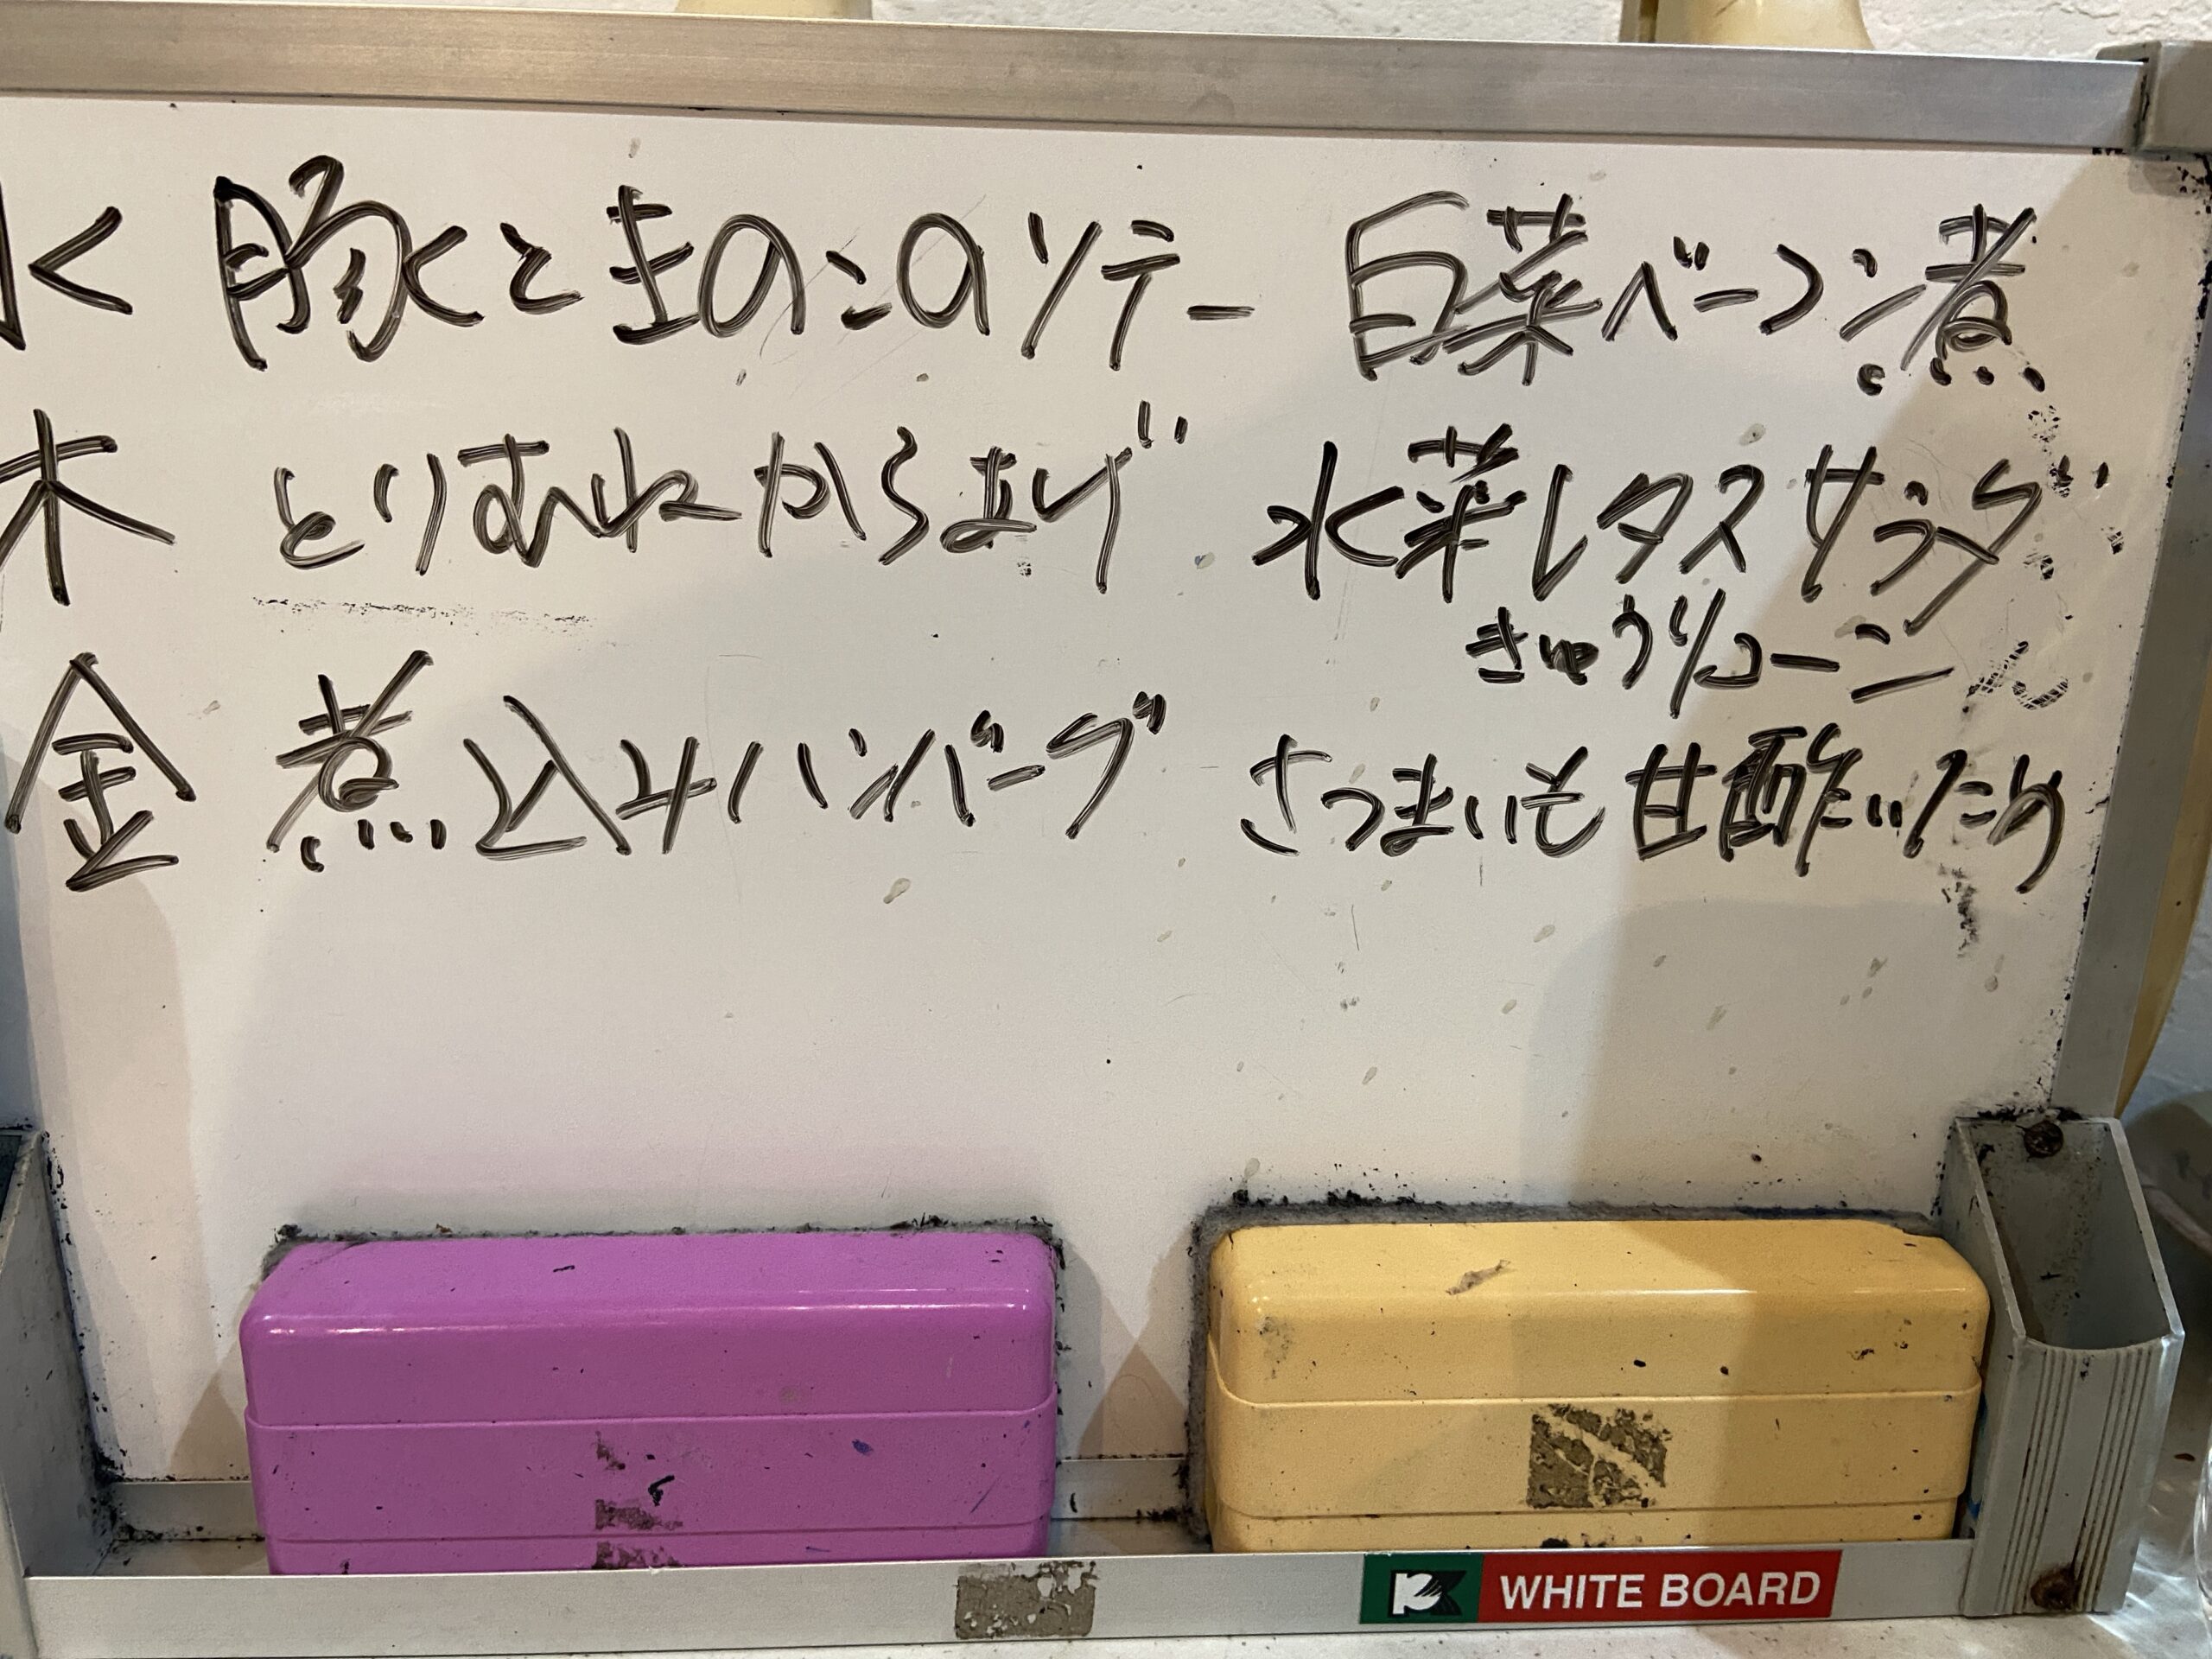 水 豚くときのこのソテー 白菜ベーコン煮
木 とりむねからあげ 水菜レタスサラダ
きゅうりコーン
金 煮込みハンバーグ さつまいも甘酢いため
WHITE BOARD